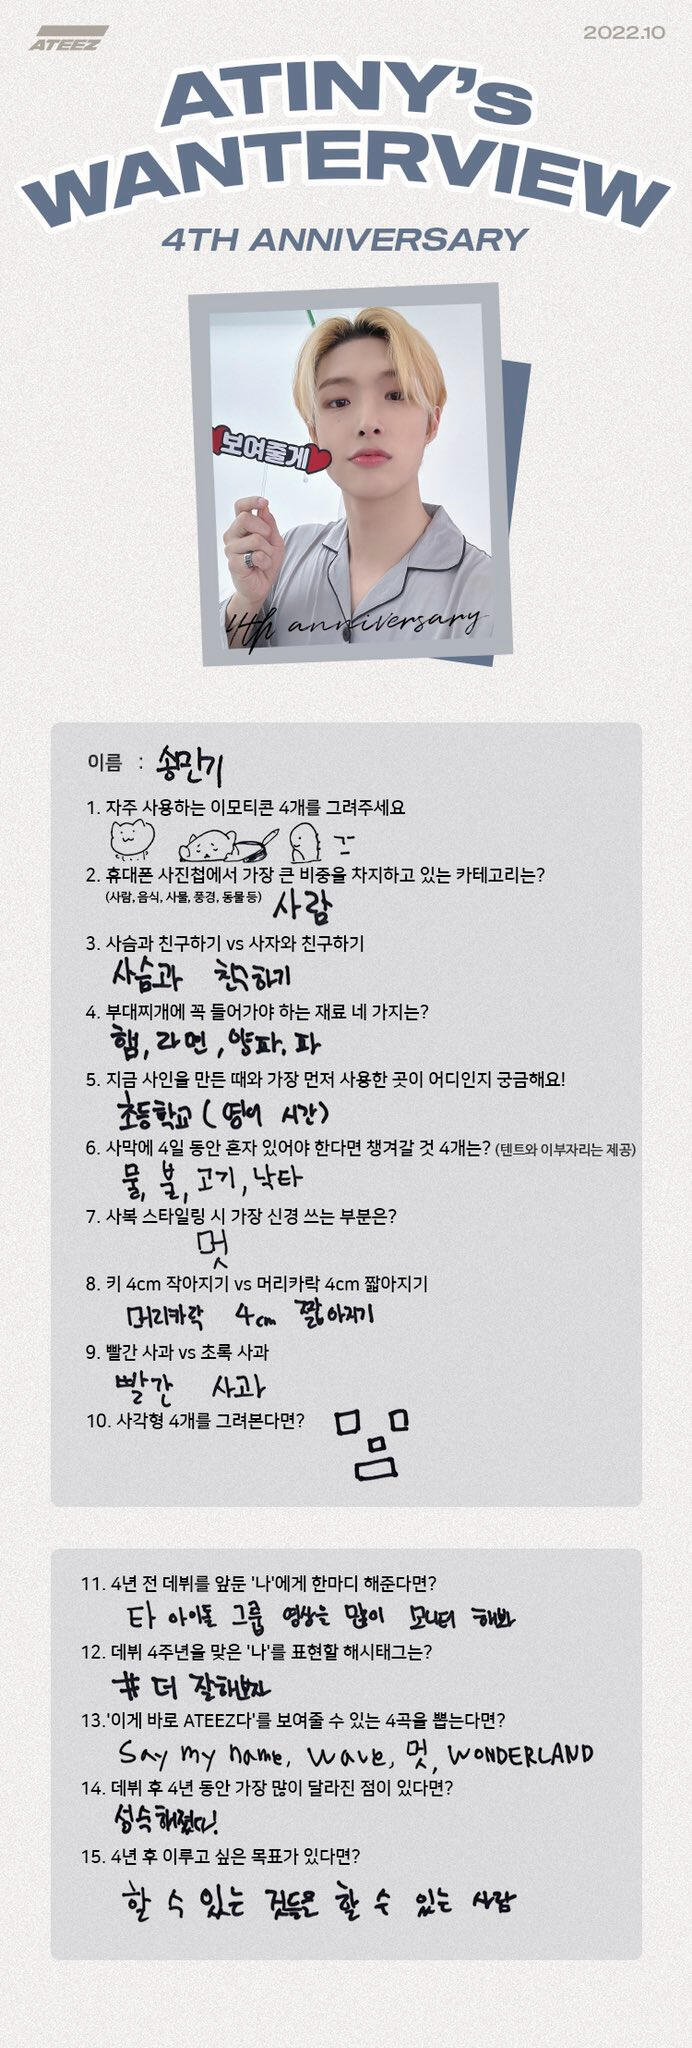 ATEEZ
2022.10
ATINY's
WANTERVIEW
4TH ANNIVERSARY
보여줄게
4th anniversary
이름 : 송민기
1. 자주 사용하는 이모티콘 4개를 그려주세요
2. 휴대폰 사진첩에서 가장 큰 비중을 차지하고 있는 카테고리는?
(사람, 음식, 사물, 풍경, 동물 등) 사람
3. 사슴과 친구하기 vs 사자와 친구하기
사슴과 친구하기
4. 부대찌개에 꼭 들어가야 하는 재료 네 가지는?
햄, 라면, 양파, 파
5. 지금 사인을 만든 때와 가장 먼저 사용한 곳이 어디인지 궁금해요!
초등학교 (영어 시간)
6. 사막에 4일 동안 혼자 있어야 한다면 챙겨갈 것 4개는? (텐트와 이부자리는 제공)
물, 불, 고기, 낙타
7. 사복 스타일링 시 가장 신경 쓰는 부분은?
멋
8. 키 4cm 작아지기 vs 머리카락 4cm 짧아지기
머리카락 4cm 짧아지기
9. 빨간 사과 vs 초록 사과
빨간 사과
10. 사각형 4개를 그려본다면?
11. 4년 전 데뷔를 앞둔 '나'에게 한마디 해준다면?
타 아이돌 그룹 영상을 많이 모니터 해봐
12. 데뷔 4주년을 맞은 '나'를 표현할 해시태그는?
# 더 잘해보자
13. '이게 바로 ATEEZ다'를 보여줄 수 있는 4곡을 뽑는다면?
Say my name, Wave, 멋, WONDERLAND
14. 데뷔 후 4년 동안 가장 많이 달라진 점이 있다면?
성숙해졌다!
15. 4년 후 이루고 싶은 목표가 있다면?
할 수 있는 것들을 할 수 있는 사람